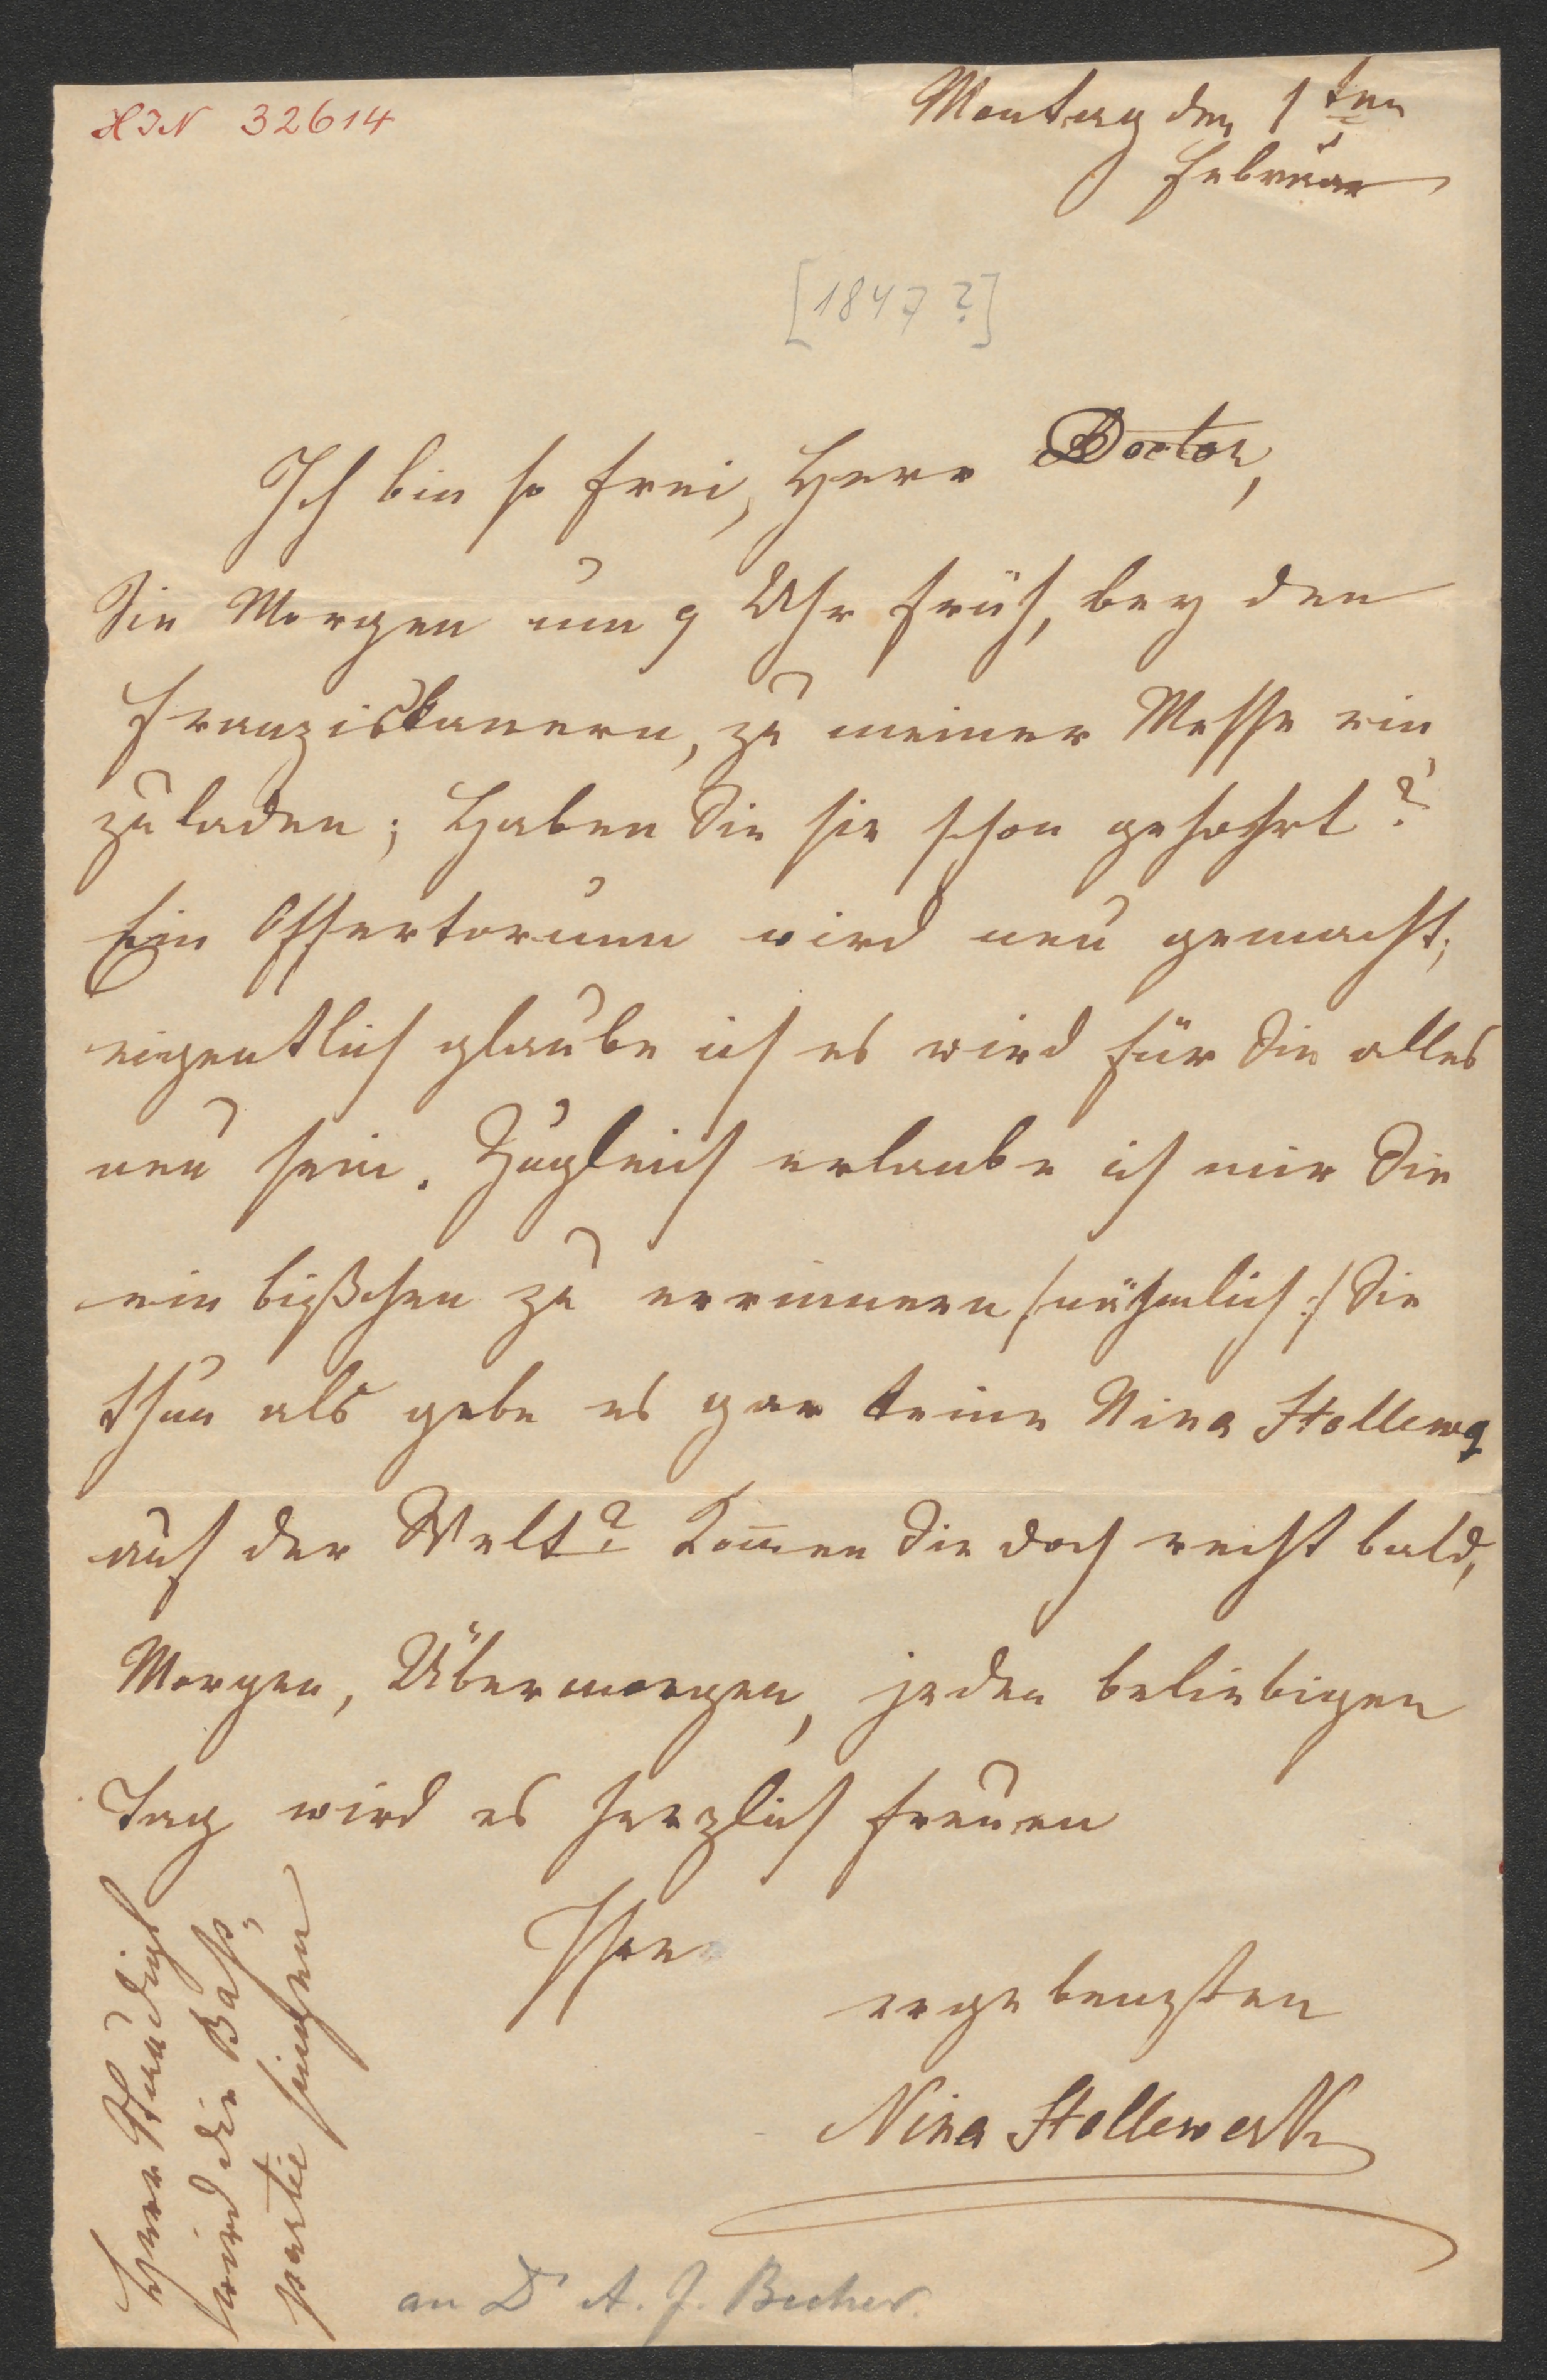 HIN 32614
Montag den 1ten
Februar
[1847?]
Ich bin so frei, Herr Doctor,
Sie Morgen um 9 Uhr früh, bey den
Franziskanern, zu meiner Messe ein
zuladen; Haben Sie sie schon gehöhrt?
Ein Offertorium wird neu gemacht;
eigentlich glaube ich es wird für Sie alles
neu sein. Zugleich erlaube ich mir Sie
ein bißchen zu errinnern /:nähmlich:/ Sie
thun als gebe es gar keine Nina Stollewerk
auf der Welt? Kom̅en Sie doch recht bald,
Morgen, Übermorgen, jeden beliebigen
Tag wird es herzlich freuen
Ihre
ergebensten
Nina Stollewerk
Herr Staudigl
wird die Baß,
partie singen
an Dr A. J. Becher.